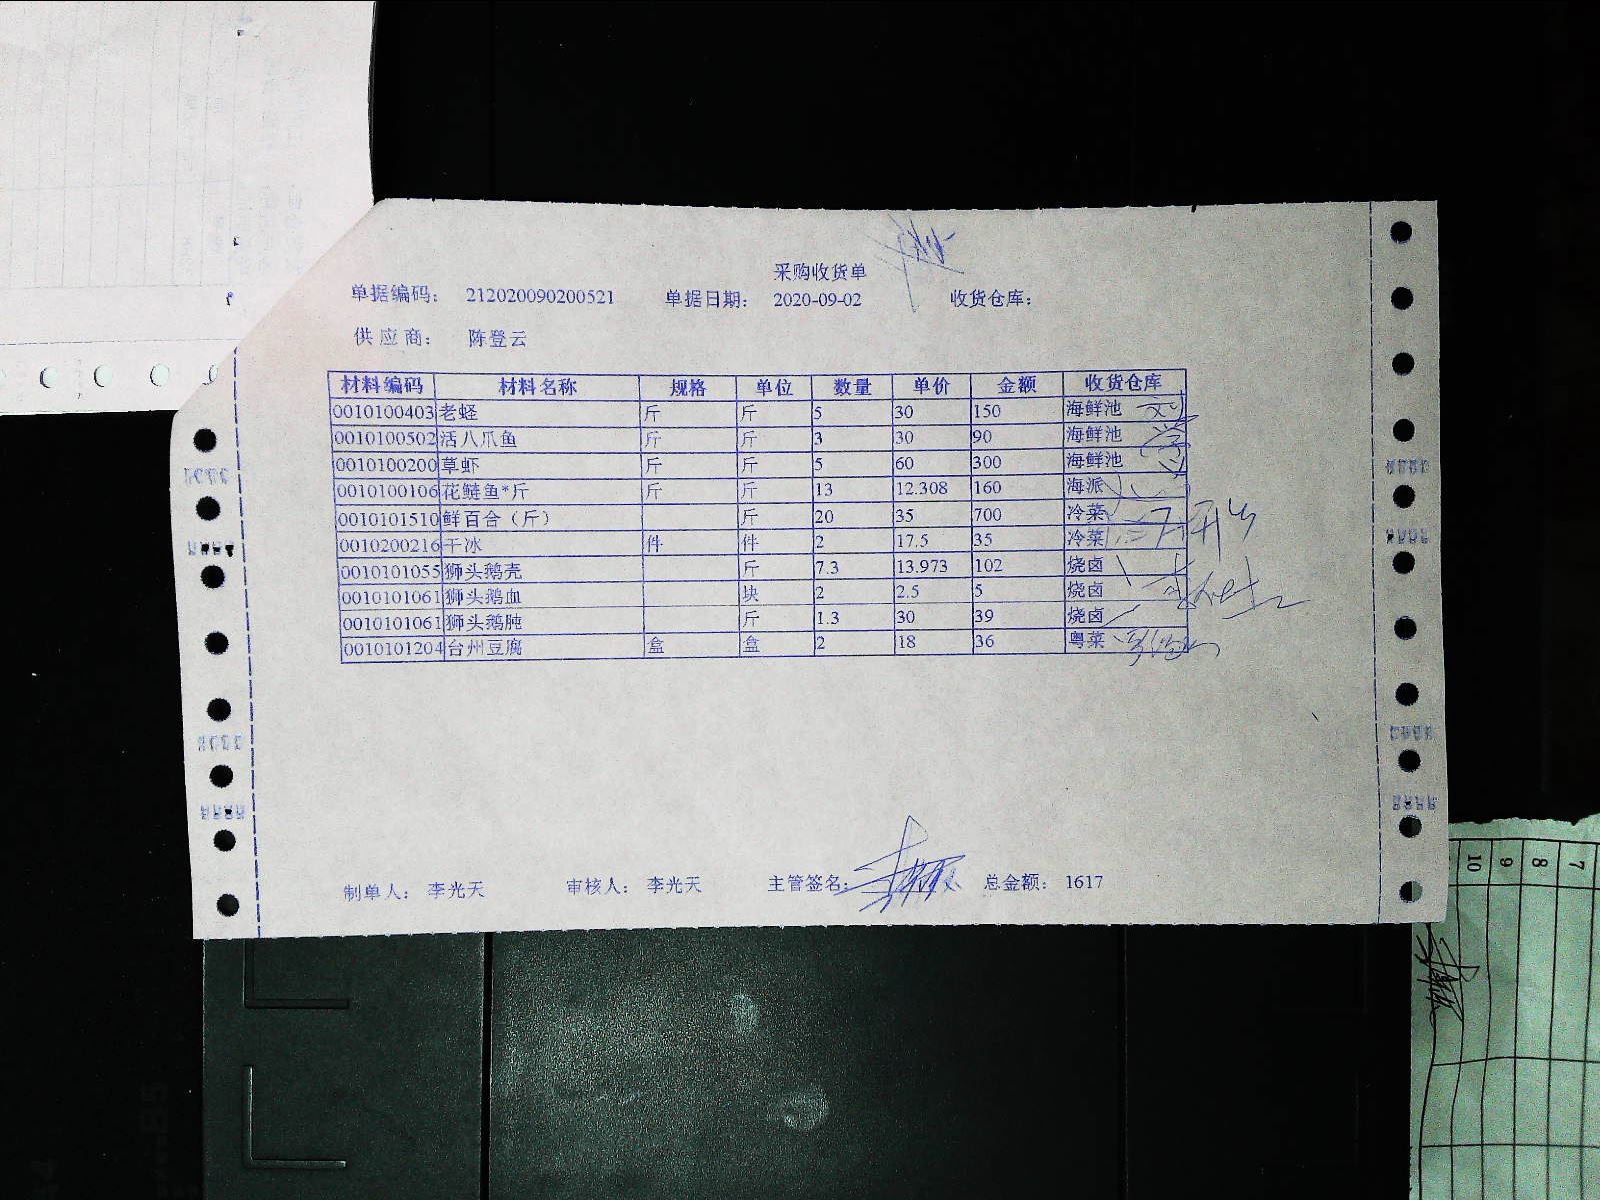 采购收货单
单据编码： 212020090200521 单据日期： 2020-09-02 收货仓库：
供应商： 陈登云
材料编码 材料名称 规格 单位 数量 单价 金额 收货仓库
0010100403 老蛏 斤 斤 5 30 150 海鲜池
0010100502 活八爪鱼 斤 斤 3 30 90 海鲜池
0010100200 草虾 斤 斤 5 60 300 海鲜池
0010100106 花鲢鱼*斤 斤 斤 13 12.308 160 海派
0010101510 鲜百合（斤） 斤 20 35 700 冷菜
0010200216 干冰 件 件 2 17.5 35 冷菜
0010101055 狮头鹅壳 斤 7.3 13.973 102 烧卤
0010101061 狮头鹅血 块 2 2.5 5 烧卤
0010101061 狮头鹅肫 斤 1.3 30 39 烧卤
0010101204 台州豆腐 盒 盒 2 18 36 粤菜
制单人： 李光天 审核人： 李光天 主管签名： 总金额： 1617
10 9 8 7